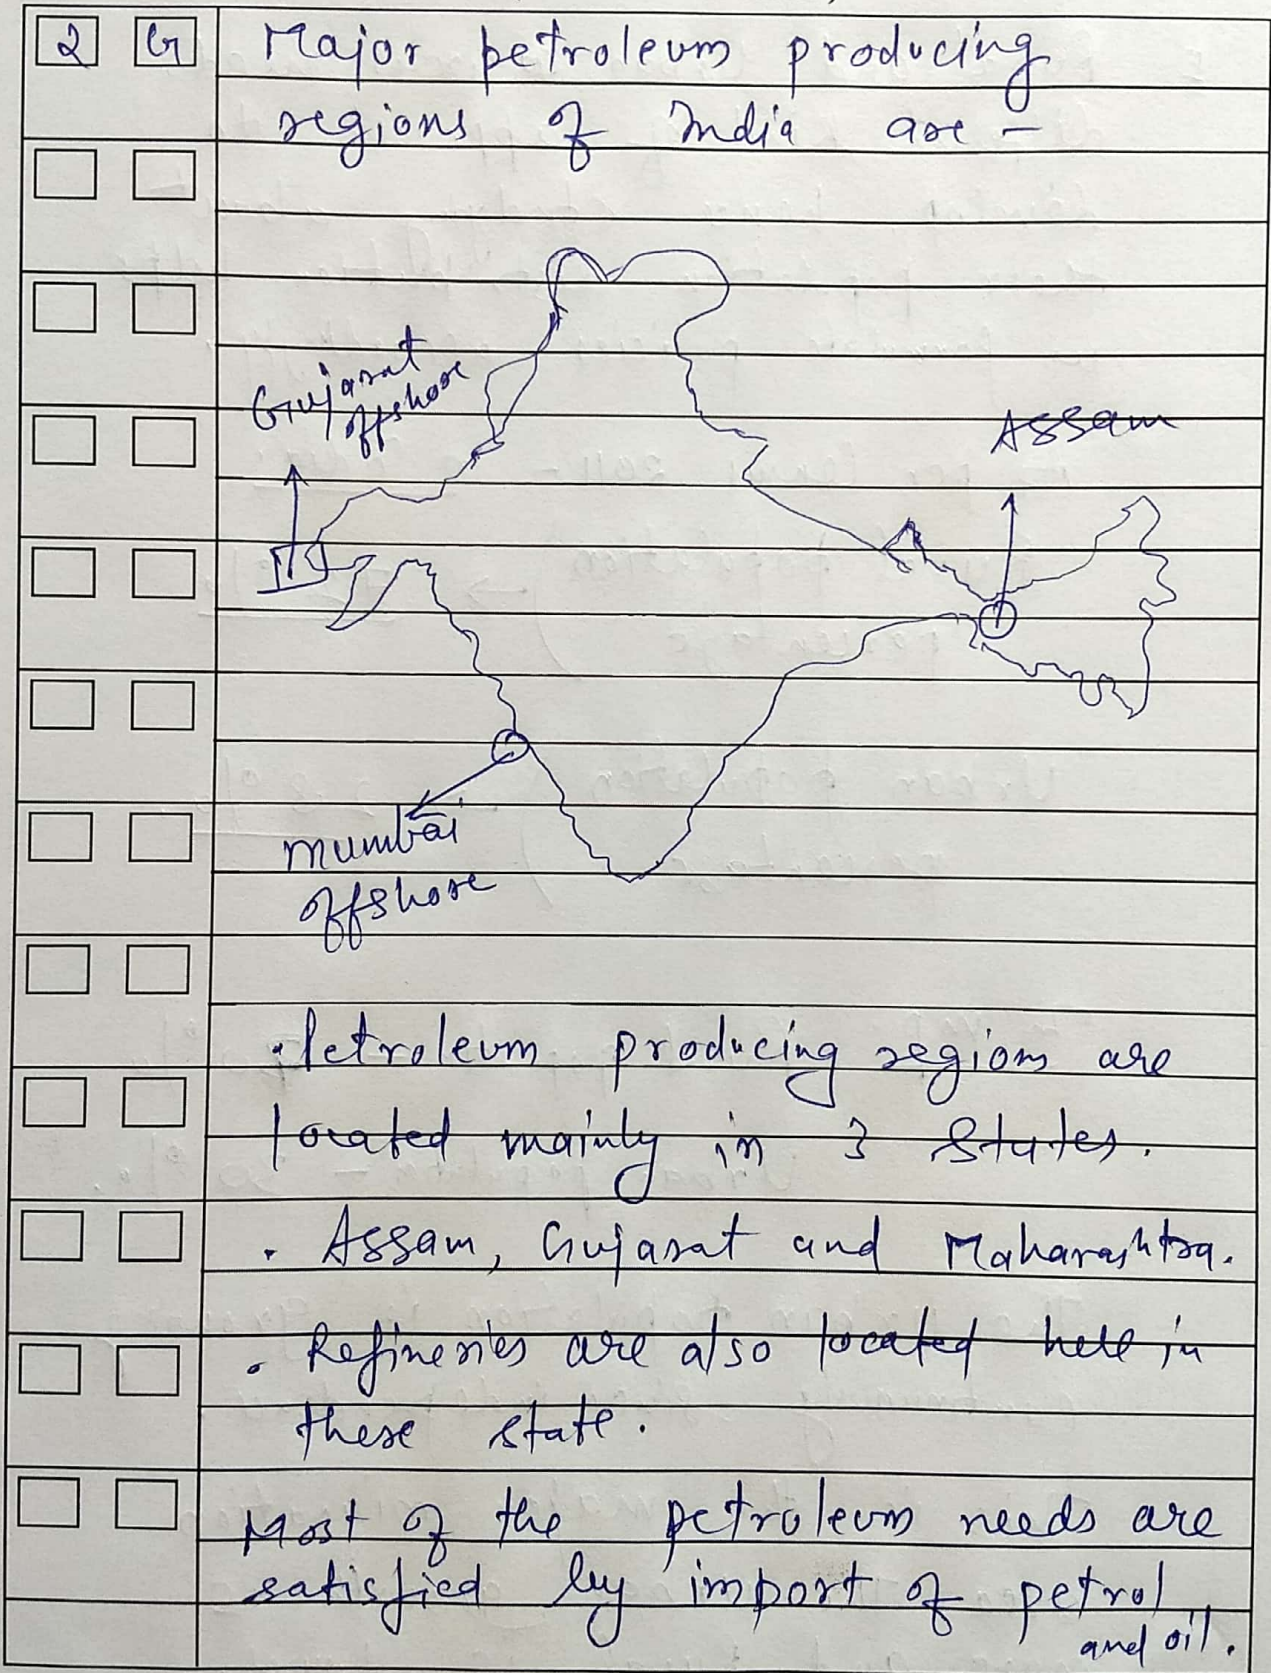 2 G Major petroleum producing
regions of India are -
Gujarat
offshore
Assam
Mumbai
offshore
. Petroleum producing regions are
located mainly in 3 states.
. Assam, Gujarat and Maharashtra.
. Refineries are also located here in
these state.
Most of the petroleum needs are
satisfied by import of petrol
and oil.